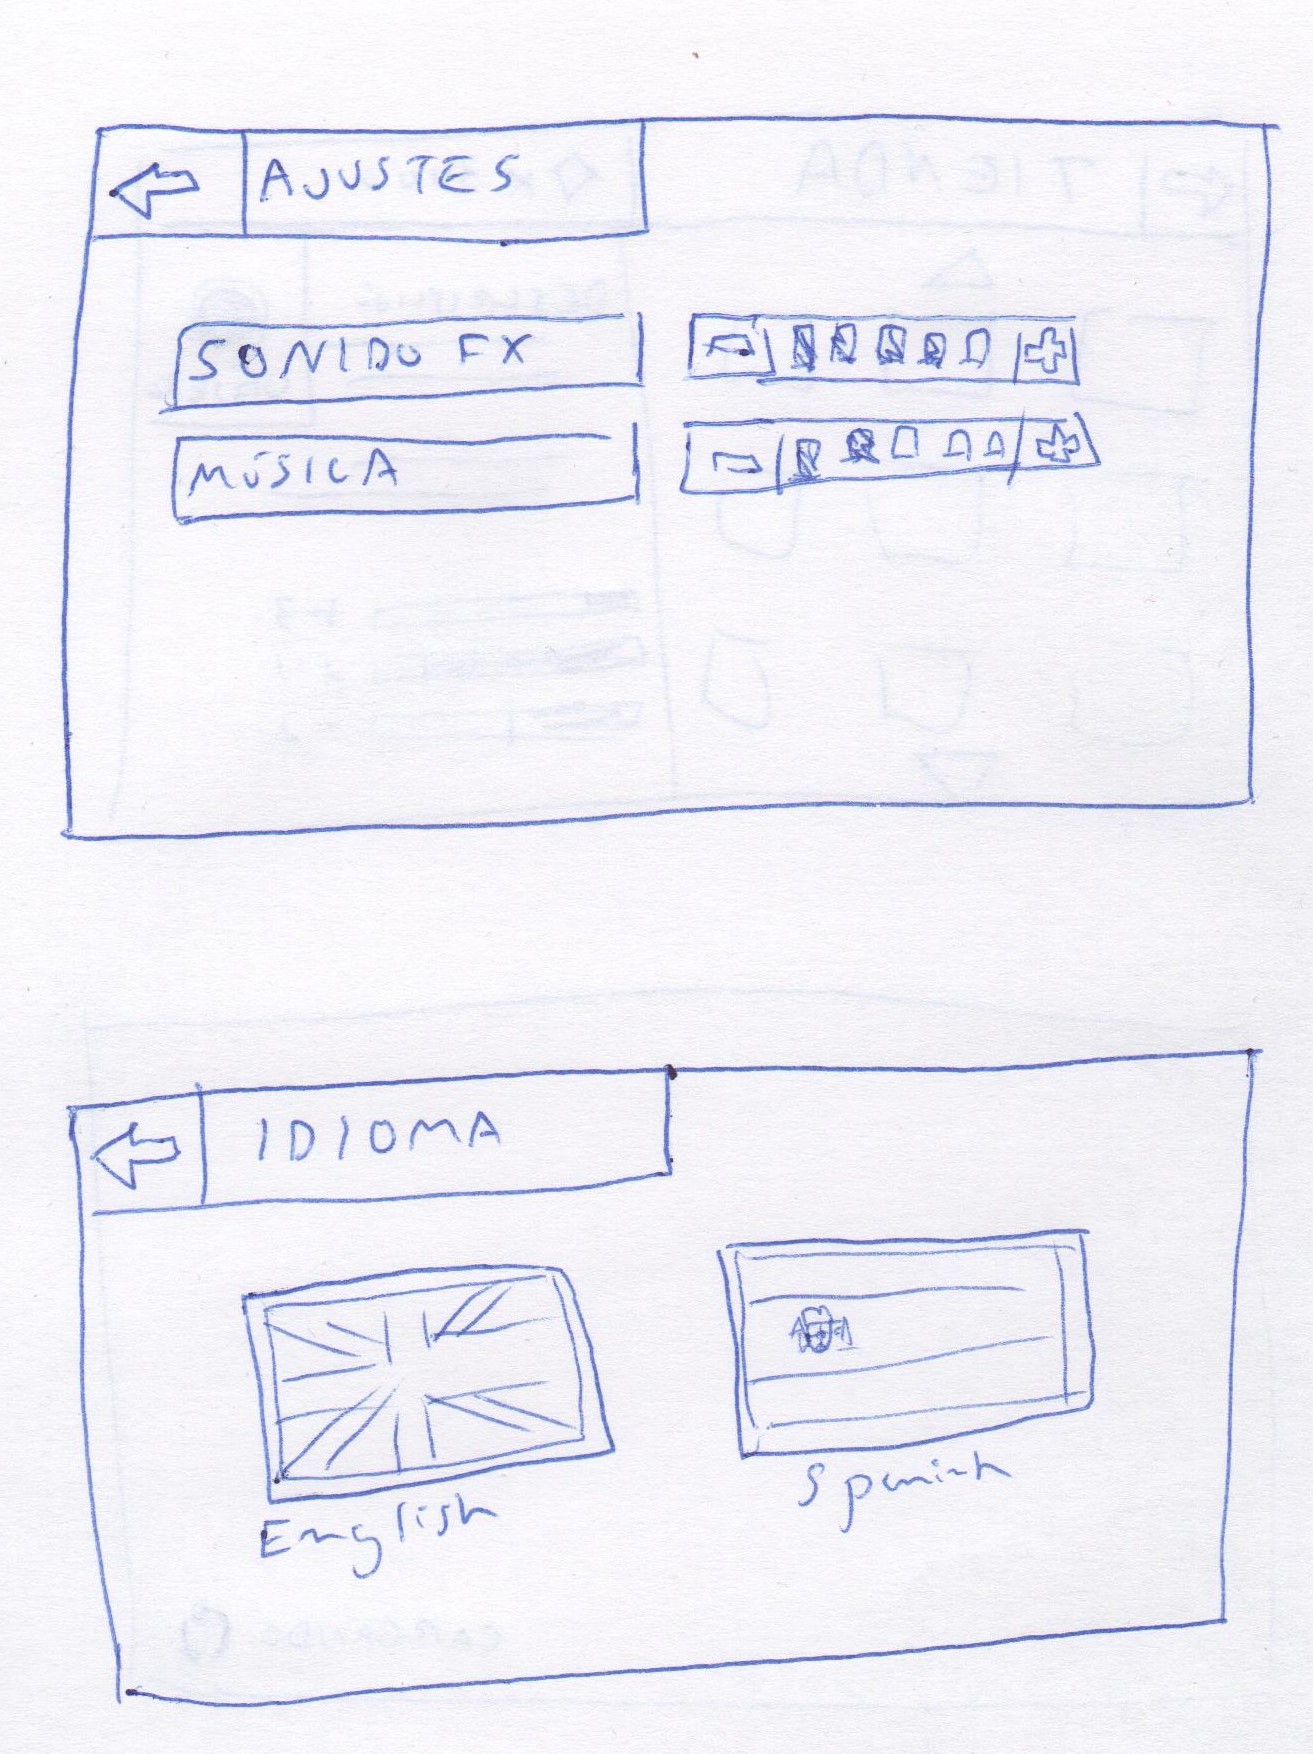 AJUSTES
SONIDO FX
MÚSICA
IDIOMA
English
Spanish